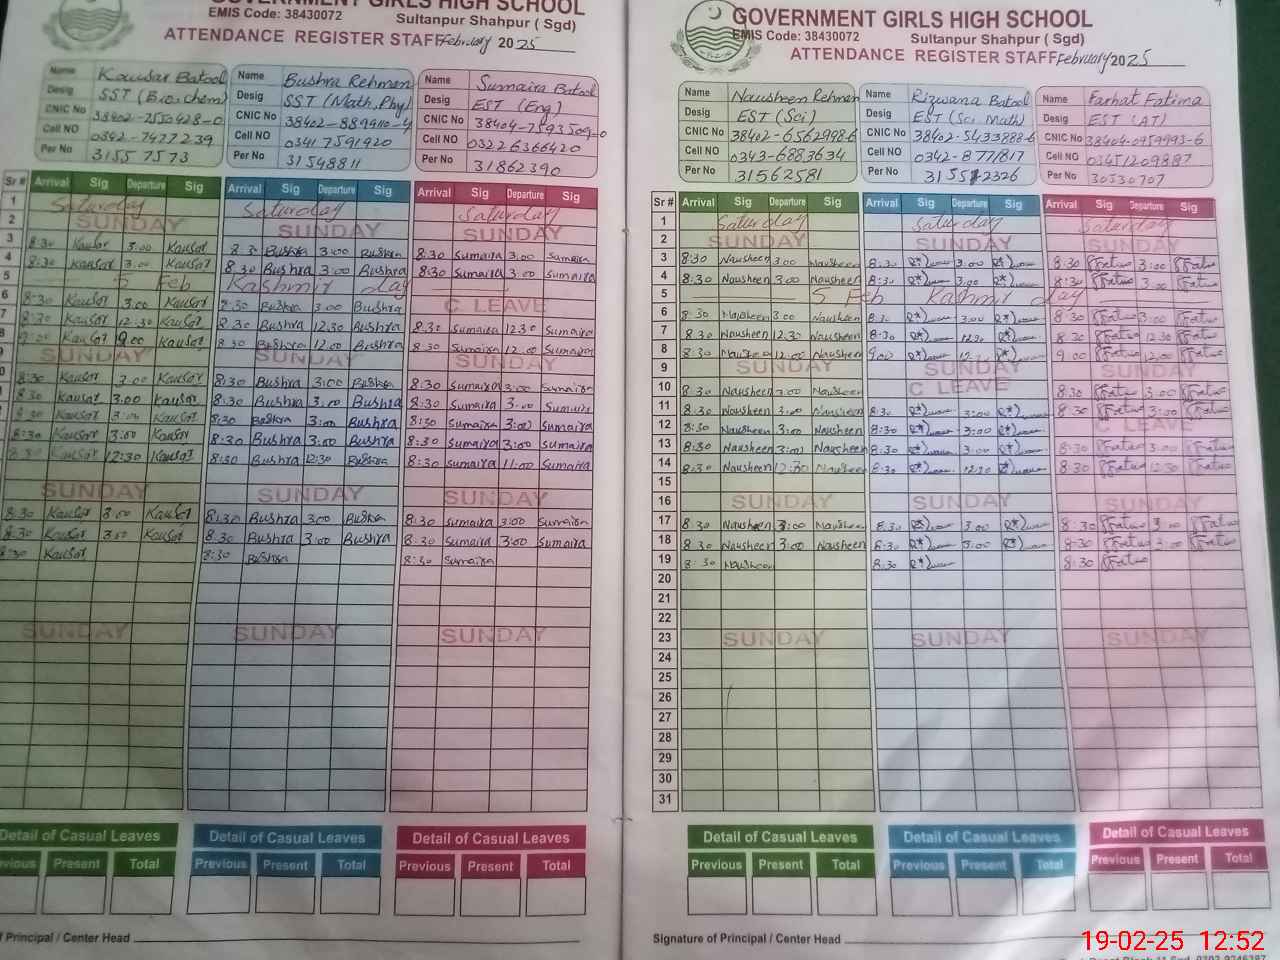 GOVERNMENT GIRLS HIGH SCHOOL
EMIS Code: 38430072 Sultanpur Shahpur ( Sgd)
ATTENDANCE REGISTER STAFF February 2025
Name Kousar Batool
Desig SST (Bio,chem)
CNIC No
Cell NO 0342-7477239
Per No 31557573
Name Bushra Rehman
Desig SST (Math,Phy)
CNIC No
Cell NO 03417591920
Per No 31548811
Name Sumaira Batool
Desig EST (Eng)
CNIC No
Cell NO 03226366420
Per No 31862390
Sr # Arrival Sig Departure Sig Arrival Sig Departure Sig Arrival Sig Departure Sig
1 Saturday Saturday Saturday
2 SUNDAY SUNDAY SUNDAY
3 8:30 Kausar 3:00 Kausar Bushra 3:00 Bushra 8:30 Sumaira 3:00 Sumaira
4 8:30 Kausar 3:00 Kausar 8:30 Bushra 3:00 Bushra 8:30 Sumaira 3:00 Sumaira
5 5 Feb Kashmir day
6 8:30 Kausar 3:00 Kausar 8:30 Bushra 3:00 Bushra C LEAVE
7 8:30 Kausar 12:30 Kausar 8:30 Bushra 12:30 Bushra 8:30 Sumaira 12:30 Sumaira
8 Kausar Kausar 8:30 Bushra 12:00 Bushra 8:30 Sumaira 12:00 Sumaira
SUNDAY SUNDAY SUNDAY
8:30 Kausar 3:00 Kausar 8:30 Bushra 3:00 Bushra 8:30 Sumaira 3:00 Sumaira
8:30 Kausar 3:00 Kausar 8:30 Bushra 3:00 Bushra 8:30 Sumaira 3:00 Sumaira
8:30 Kausar 3:00 Kausar 8:30 Bushra 3:00 Bushra 8:30 Sumaira 3:00 Sumaira
8:30 Kausar 3:00 Kausar 8:30 Bushra 3:00 Bushra 8:30 Sumaira 3:00 Sumaira
8:30 Kausar 12:30 Kausar 8:30 Bushra 12:30 Bushra 8:30 Sumaira 11:00 Sumaira
SUNDAY SUNDAY SUNDAY
8:30 Kausar 3:00 Kausar 8:30 Bushra 3:00 Bushra 8:30 Sumaira 3:00 Sumaira
8:30 Kausar 3:00 Kausar 8:30 Bushra 3:00 Bushra 8:30 Sumaira 3:00 Sumaira
8:30 Kausar 8:30 Bushra 8:30 Sumaira
SUNDAY SUNDAY SUNDAY
Detail of Casual Leaves Detail of Casual Leaves Detail of Casual Leaves
Present Total Previous Present Total Previous Present Total
of Principal / Center Head
GOVERNMENT GIRLS HIGH SCHOOL
EMIS Code: 38430072 Sultanpur Shahpur ( Sgd)
ATTENDANCE REGISTER STAFF February 2025
Name Nausheen Rehman
Desig EST (Sci)
CNIC No 38402-6562998-6
Cell NO 0343-6883634
Per No 31562581
Name Rizwana Batool
Desig EST (Sci Math)
CNIC No 38402-5433888-6
Cell NO 0342-8771817
Per No
Name Farhat Fatima
Desig EST (AT)
CNIC No
Cell NO 03451209887
Per No 30530707
Sr # Arrival Sig Departure Sig Arrival Sig Departure Sig Arrival Sig Departure Sig
1 Saturday Saturday Saturday
2 SUNDAY SUNDAY SUNDAY
3 8:30 Nausheen 3:00 Nausheen 8:30 3:00 8:30 3:00
4 8:30 Nausheen 3:00 Nausheen 8:30 3:00 8:30 3:00
5 5 Feb Kashmir day
6 8:30 Nausheen 3:00 Nausheen 8:30 3:00 8:30 3:00
7 8:30 Nausheen 12:30 Nausheen 8:30 12:30 8:30 12:30
8 8:30 Nausheen 12:00 Nausheen 9:00 9:00 12:00
9 SUNDAY SUNDAY SUNDAY
10 8:30 Nausheen 3:00 Nausheen C LEAVE 8:30 3:00
11 8:30 Nausheen 3:00 Nausheen 8:30 3:00 8:30 3:00
12 8:30 Nausheen 3:00 Nausheen 8:30 3:00 C LEAVE
13 8:30 Nausheen 3:00 Nausheen 8:30 3:00 8:30 3:00
14 8:30 Nausheen 12:30 Nausheen 8:30 12:30 8:30 12:30
15
16 SUNDAY SUNDAY SUNDAY
17 8:30 Nausheen 3:00 Nausheen 8:30 3:00 8:30 3:00
18 8:30 Nausheen 3:00 Nausheen 8:30 3:00 8:30 3:00
19 8:30 Nausheen 8:30 8:30
20
21
22
23 SUNDAY SUNDAY SUNDAY
24
25
26
27
28
29
30
31
Detail of Casual Leaves Detail of Casual Leaves Detail of Casual Leaves
Previous Present Total Previous Present Total Previous Present Total
Signature of Principal / Center Head
19-02-25 12:52